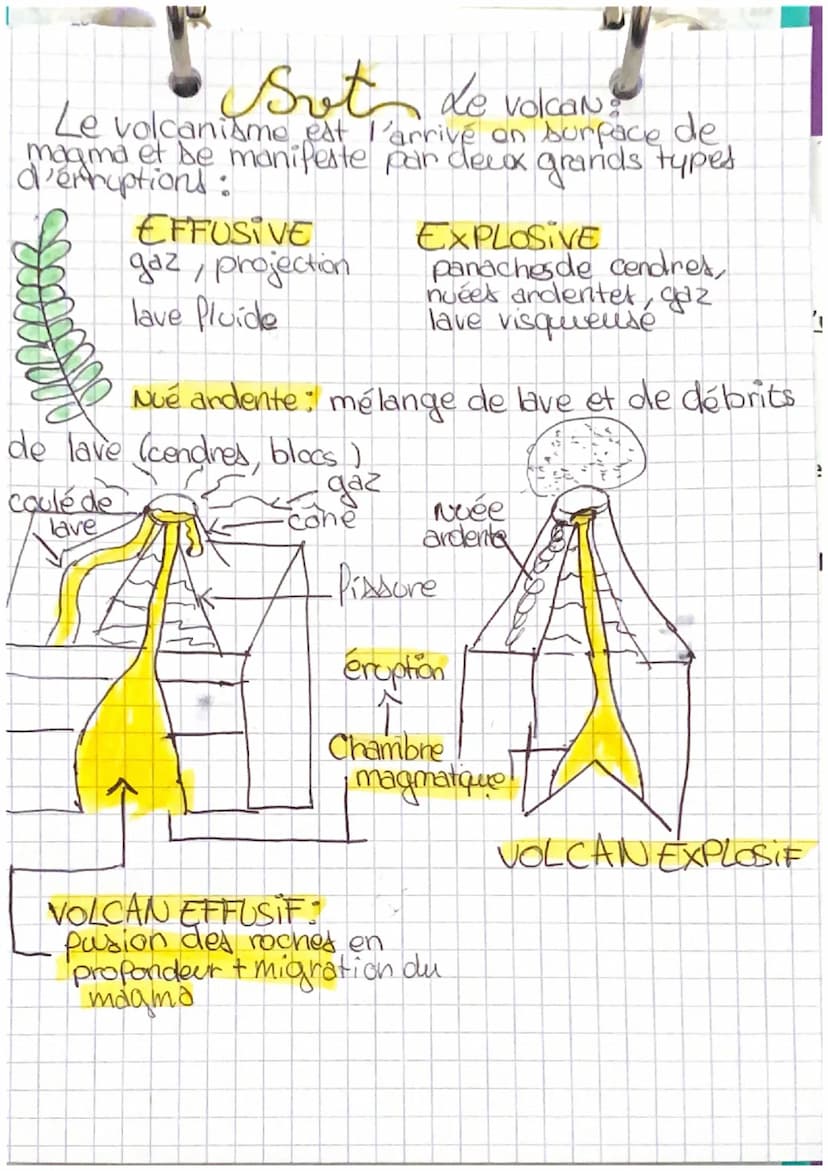 Svt Le volcan :
Le volcanisme est l'arrivé en surface de
magma et se manifeste par deux grands types
d'érruptions :
EFFUSIVE
gaz, projection
lave fluide
EXPLOSIVE
panaches de cendres,
nuées ardentes, gaz
lave visqueuse
Nué ardente : mélange de lave et de débrits
de lave (cendres, blocs)
gaz
cône
coulé de
lave
fissure
nuée
ardente
éruption
Chambre
magmatique
VOLCAN EXPLOSIF
VOLCAN EFFUSIF :
fusion des roches en
profondeur + migration du
magma